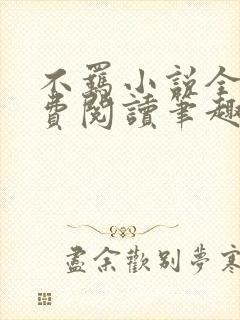 不羁小说全
费閱讀笔趣
盡余歡别夢寒